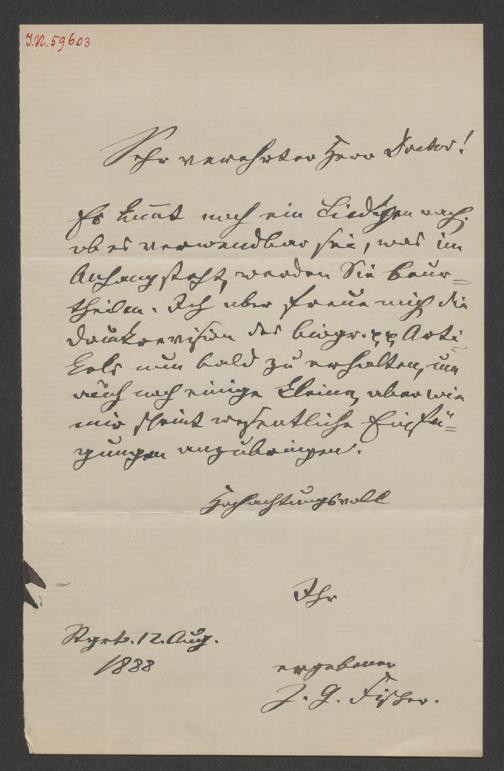 J.N. 59603
Sehr verehrter Herr Doctor!
Es kommt noch ein Liedchen nach,
ob es verwendbar sei, was im
Anhang steht, werden Sie beur-
theilen. Ich aber freue mich die
Druckrevision des biogr. Arti-
kels nun bald zu erhalten, um
noch einige kleine, aber wie
mir scheint wesentliche Einfü-
gungen anzubringen.
Hochachtungsvoll
Ihr
Stgrt. 12. Aug.
1888
ergebener
J. G. Fischer.